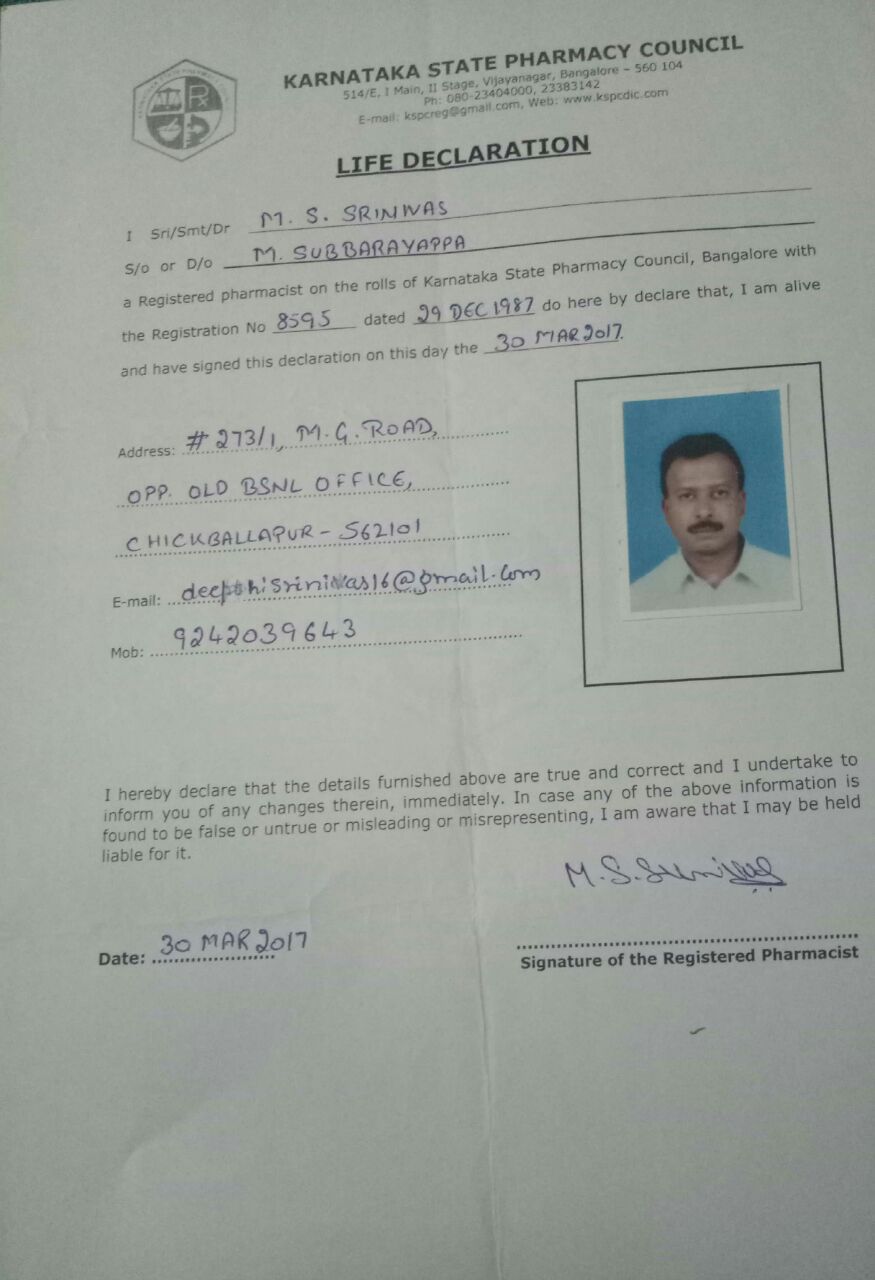 KARNATAKA STATE PHARMACY COUNCIL
514/E, I Main, II Stage, Vijayanagar, Bangalore – 560 104
Ph: 080-23404000, 23383142
E-mail: kspcreg@gmail.com, Web: www.kspcdic.com
LIFE DECLARATION
I Sri/Smt/Dr M. S. SRINIVAS
S/o or D/o M. SUBBARAYAPPA
a Registered pharmacist on the rolls of Karnataka State Pharmacy Council, Bangalore with
the Registration No 8595 dated 29 DEC 1987 do here by declare that, I am alive
and have signed this declaration on this day the 30 MAR 2017.
Address: # 273/1, M.G. ROAD,
OPP. OLD BSNL OFFICE,
CHICKBALLAPUR - 562101
E-mail: deepthisrinivas16@gmail.com
Mob: 9242039643
I hereby declare that the details furnished above are true and correct and I undertake to
inform you of any changes therein, immediately. In case any of the above information is
found to be false or untrue or misleading or misrepresenting, I am aware that I may be held
liable for it.
M.S.Srinivas
Date: 30 MAR 2017
Signature of the Registered Pharmacist